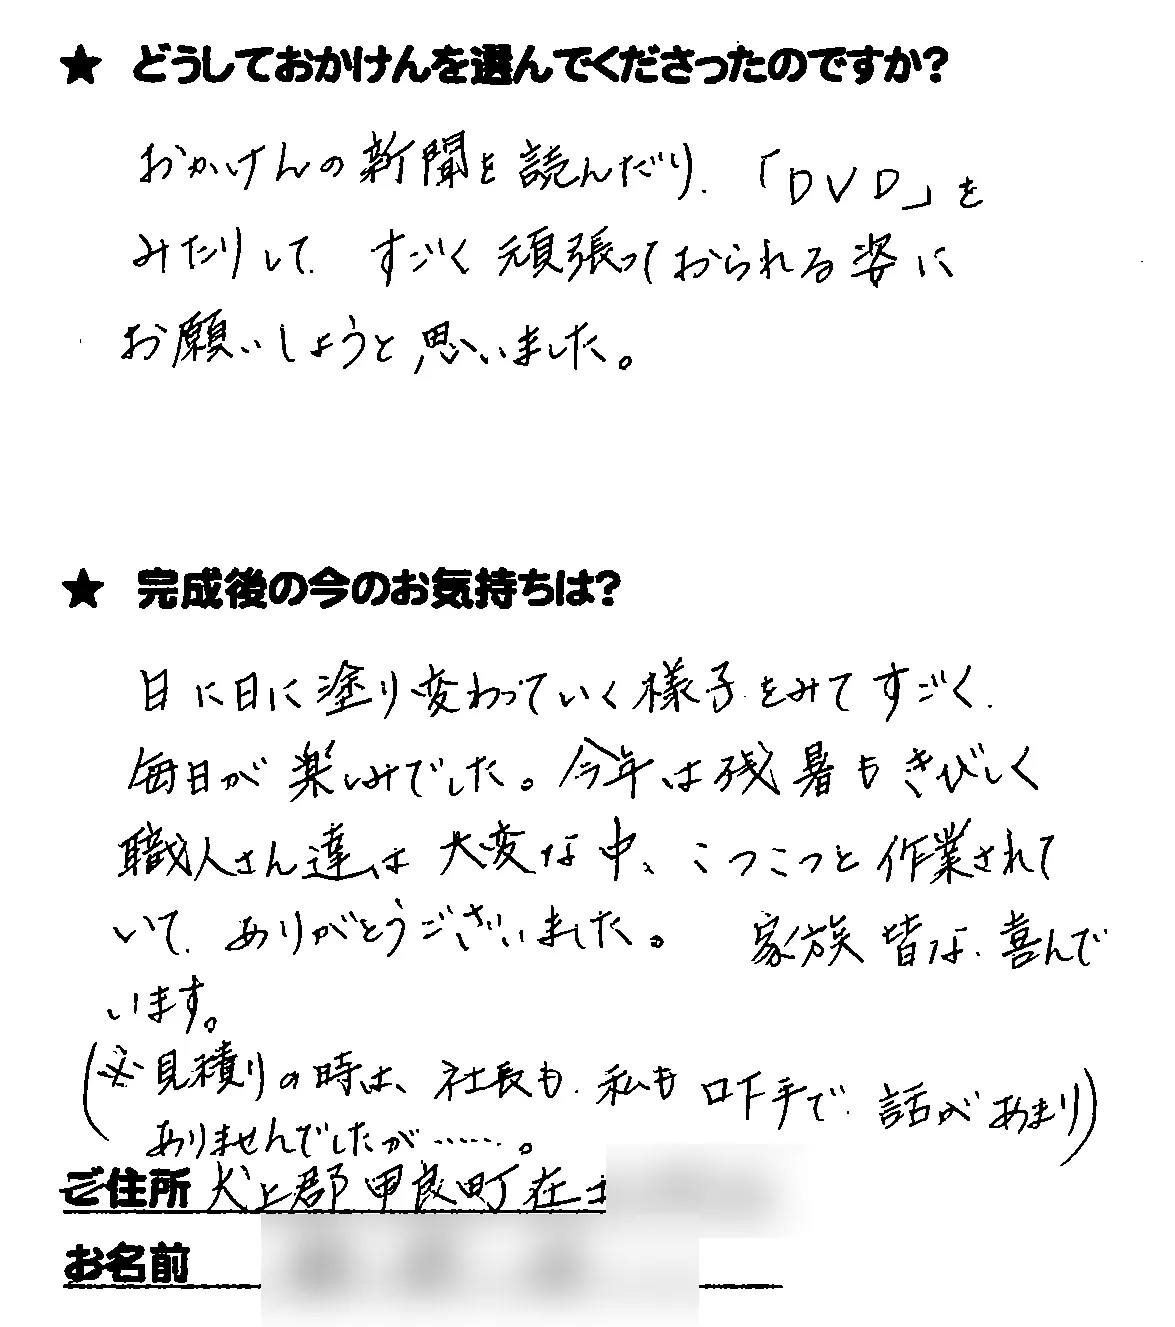 ★ どうしておかけんを選んでくださったのですか?
おかけんの新聞を読んだり、「DVD」を
みたりして、すごく頑張っておられる姿に
お願いしようと思いました。
★ 完成後の今のお気持ちは?
日に日に塗り変わっていく様子をみてすごく、
毎日が楽しみでした。今年は残暑もきびしく
職人さん達は大変な中、こつこつと作業されて
いて、ありがとうございました。 家族皆な、喜んで
います。
(※見積りの時は、社長も、私も口下手で、話があまり)
ありませんでしたが……。
ご住所 犬上郡甲良町在士
お名前